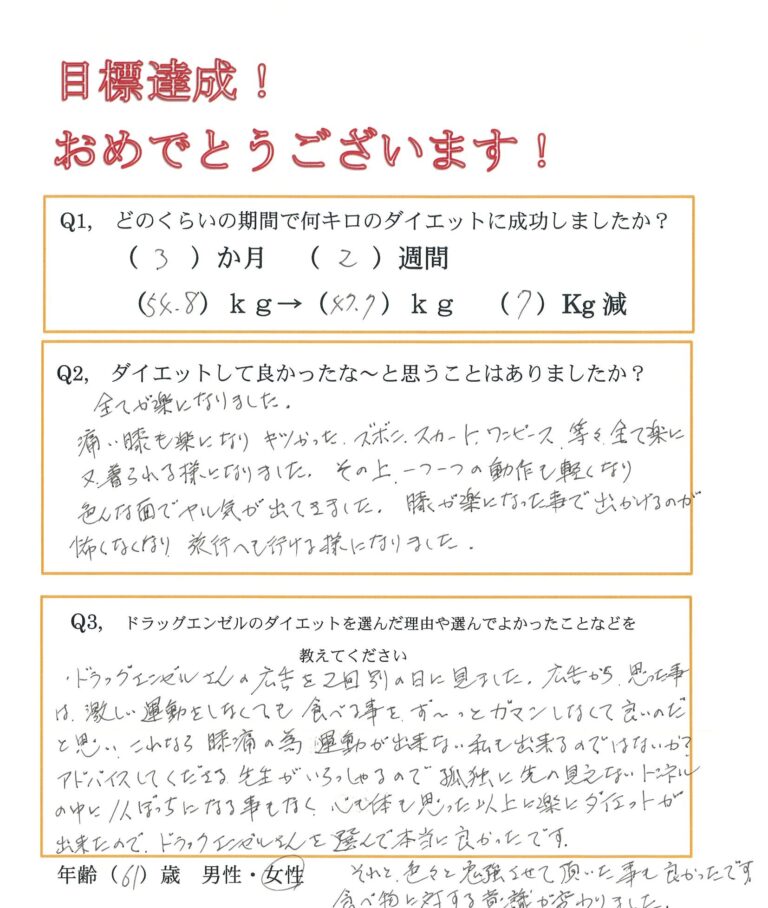 目標達成！
おめでとうございます！
Q1, どのくらいの期間で何キロのダイエットに成功しましたか？
（ 3 ）か月 （ 2 ）週間
（54.8）ｋｇ→（47.7）ｋｇ （7）Kg減
Q2, ダイエットして良かったな～と思うことはありましたか？
全てが楽になりました。
痛い膝も楽になり キツかった、ズボン、スカート、ワンピース、等々、全て楽に
又、着られる様になりました。 その上、一つ一つの動作も軽くなり
色んな面でヤル気が出てきました。 膝が楽になった事で出かけるのが
怖くなくなり 旅行へも行ける様になりました。
Q3, ドラッグエンゼルのダイエットを選んだ理由や選んでよかったことなどを
教えてください
・ドラッグエンゼルさんの広告を2回別の日に見ました。広告から、思った事
は、激しい運動をしなくても 食べる事を、ず～っとガマンしなくて良いのだ
と思い、これなら 膝痛の為 運動が出来ない私も出来るのではないか？
アドバイスしてくださる先生がいらっしゃるので 孤独に先の見えないトンネル
の中に1人ぼっちになる事もなく、心も体も思った以上に楽にダイエットが
出来たので、ドラッグエンゼルさんを選んで本当に良かったです。
年齢（61）歳 男性・女性 それと、色々と勉強させて頂いた事も良かったです
食べ物に対する意識が変わりました。